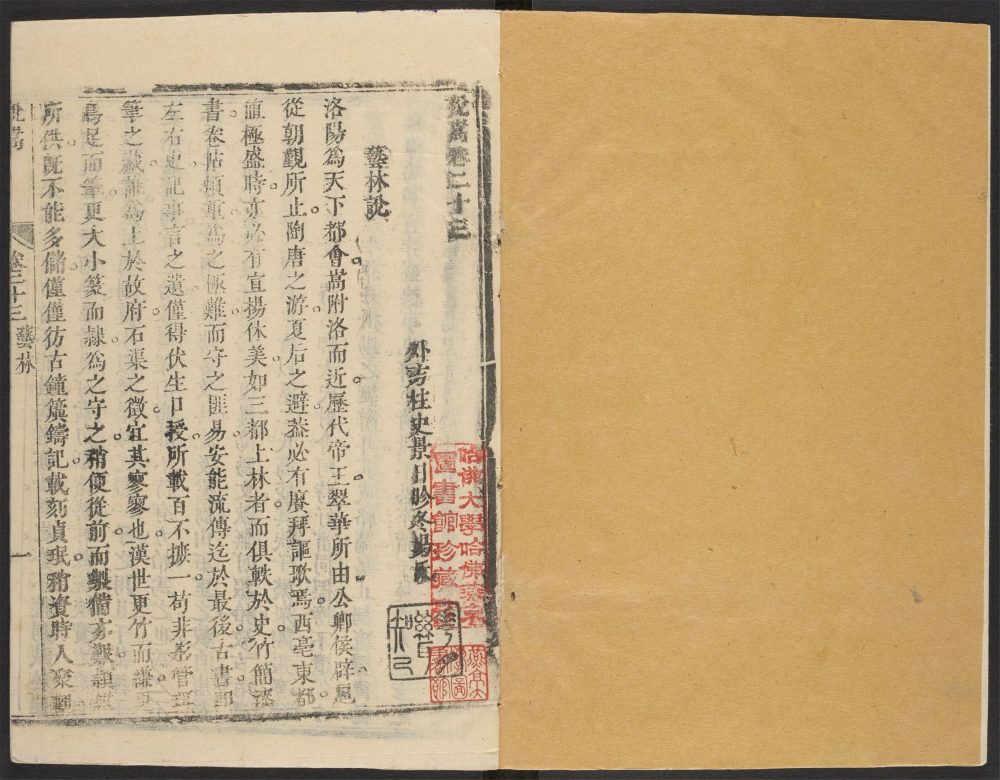 說嵩卷二十三
外方柱史景日昣冬陽
藝林說
洛陽為天下都會嵩附洛而近歷代帝王翠華所由公卿侯辟
從朝覲所止陶唐之游夏后之避葢必有賡拜謳歌焉西亳東都
值極盛時亦必有宣揚休美如三都上林者而俱軼於史竹簡
書卷帖頓重為之極難而守之匪易安能流傳迄於最後古書
左右史記事言之遺僅得伏生口授所載百不摭一苟非彤管
筆之藏誰為上於故府石渠之徵宜其寥寥也漢世更竹而縑
為足而筆更大小篆而隸為之守之稍便從前而製備亦艱
所供既不能多儲僅僅彷古鐘簴鑄記載刻貞珉稍資時人
說嵩
卷二十三 藝林
一
哈佛大學哈佛燕京圖書館珍藏